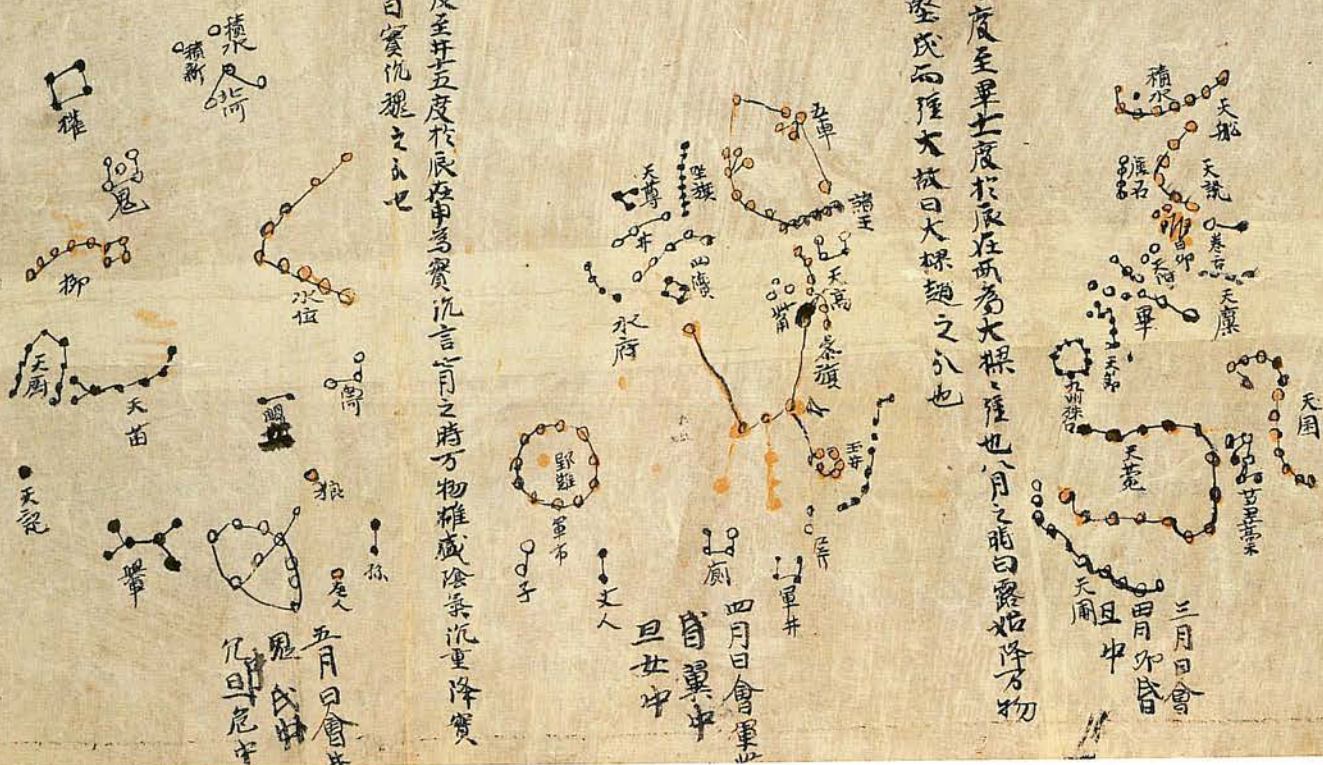 天舩
積水
天讒
厲石
卷舌
昴
天廪
畢
天節
九州殊口
天囷
天苑
芻藁
天園
三月日會
胃昴昏
旦中
度至畢十一度於辰在酉為大樑々強也八月之時白露始降万物
堅成而強大故曰大樑趙之分也
五車
諸王
坐旗
天尊
井
四瀆
天高
觜
叅旗
水府
玉井
野雞
軍市
屏
厠
軍井
子
丈人
四月日會畢觜
昏翼中
旦女中
度至井十五度於辰在申為實沉言七月之時万物雄盛陰氣沉重降實
曰實沉魏之分也
積水
積薪
北河
爟
鬼
柳
水位
天厨
天苗
狼
天記
孫
老人
五月日會
鬼氐中
旦危中